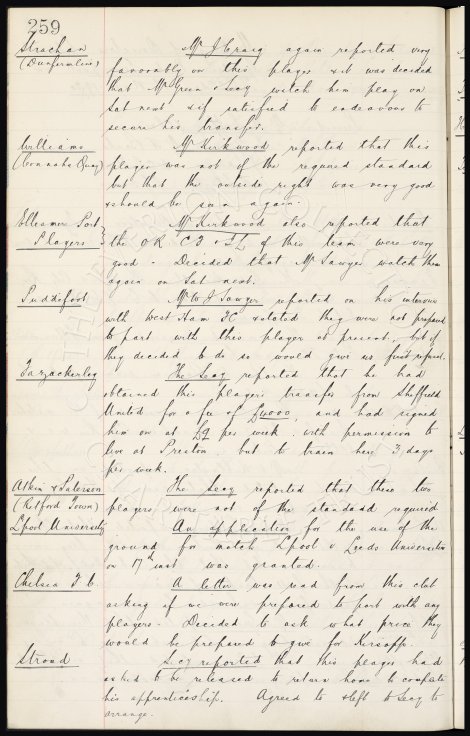 259
Strachan
(Dunfermline)
Mr J Craig again reported very
favorably on this player & it was decided
that Mr Green & Secy watch him play on
Sat next & if satisfied to endeavour to
secure his transfer.
Williams
(Connahs Quay)
Mr Kirkwood reported that this
player was not of the required standard
but that the outside right was very good
& should be seen again.
Ellesmere Port
Players
Mr Kirkwood also reported that
the OR CF & IL of this team were very
good. Decided that Mr Sawyer watch them
again on Sat next.
Puddefoot
Mr W J Sawyer reported on his interview
with West Ham FC & stated they were not prepared
to part with this player at present, but if
they decided to do so would give us first refusal.
Fazackerley
The Secy reported that he had
obtained this players transfer from Sheffield
United for a fee of £4000, and had signed
him on at £9 per week with permission to
live at Preston but to train here 3 days
per week.
Atkin & Paterson
(Retford Town)
The Secy reported that these two
players were not of the standard required
Lpool University
An application for the use of the
ground for match Lpool v Leeds Universities
on 17th inst was granted.
Chelsea F.C.
A letter was read from this club
asking if we were prepared to part with any
players. Decided to ask what price they
would be prepared to give for Kirsopp.
Stroud
Secy reported that this player had
asked to be released to return home to complete
his apprenticeship. Agreed to & left to Secy to
arrange.